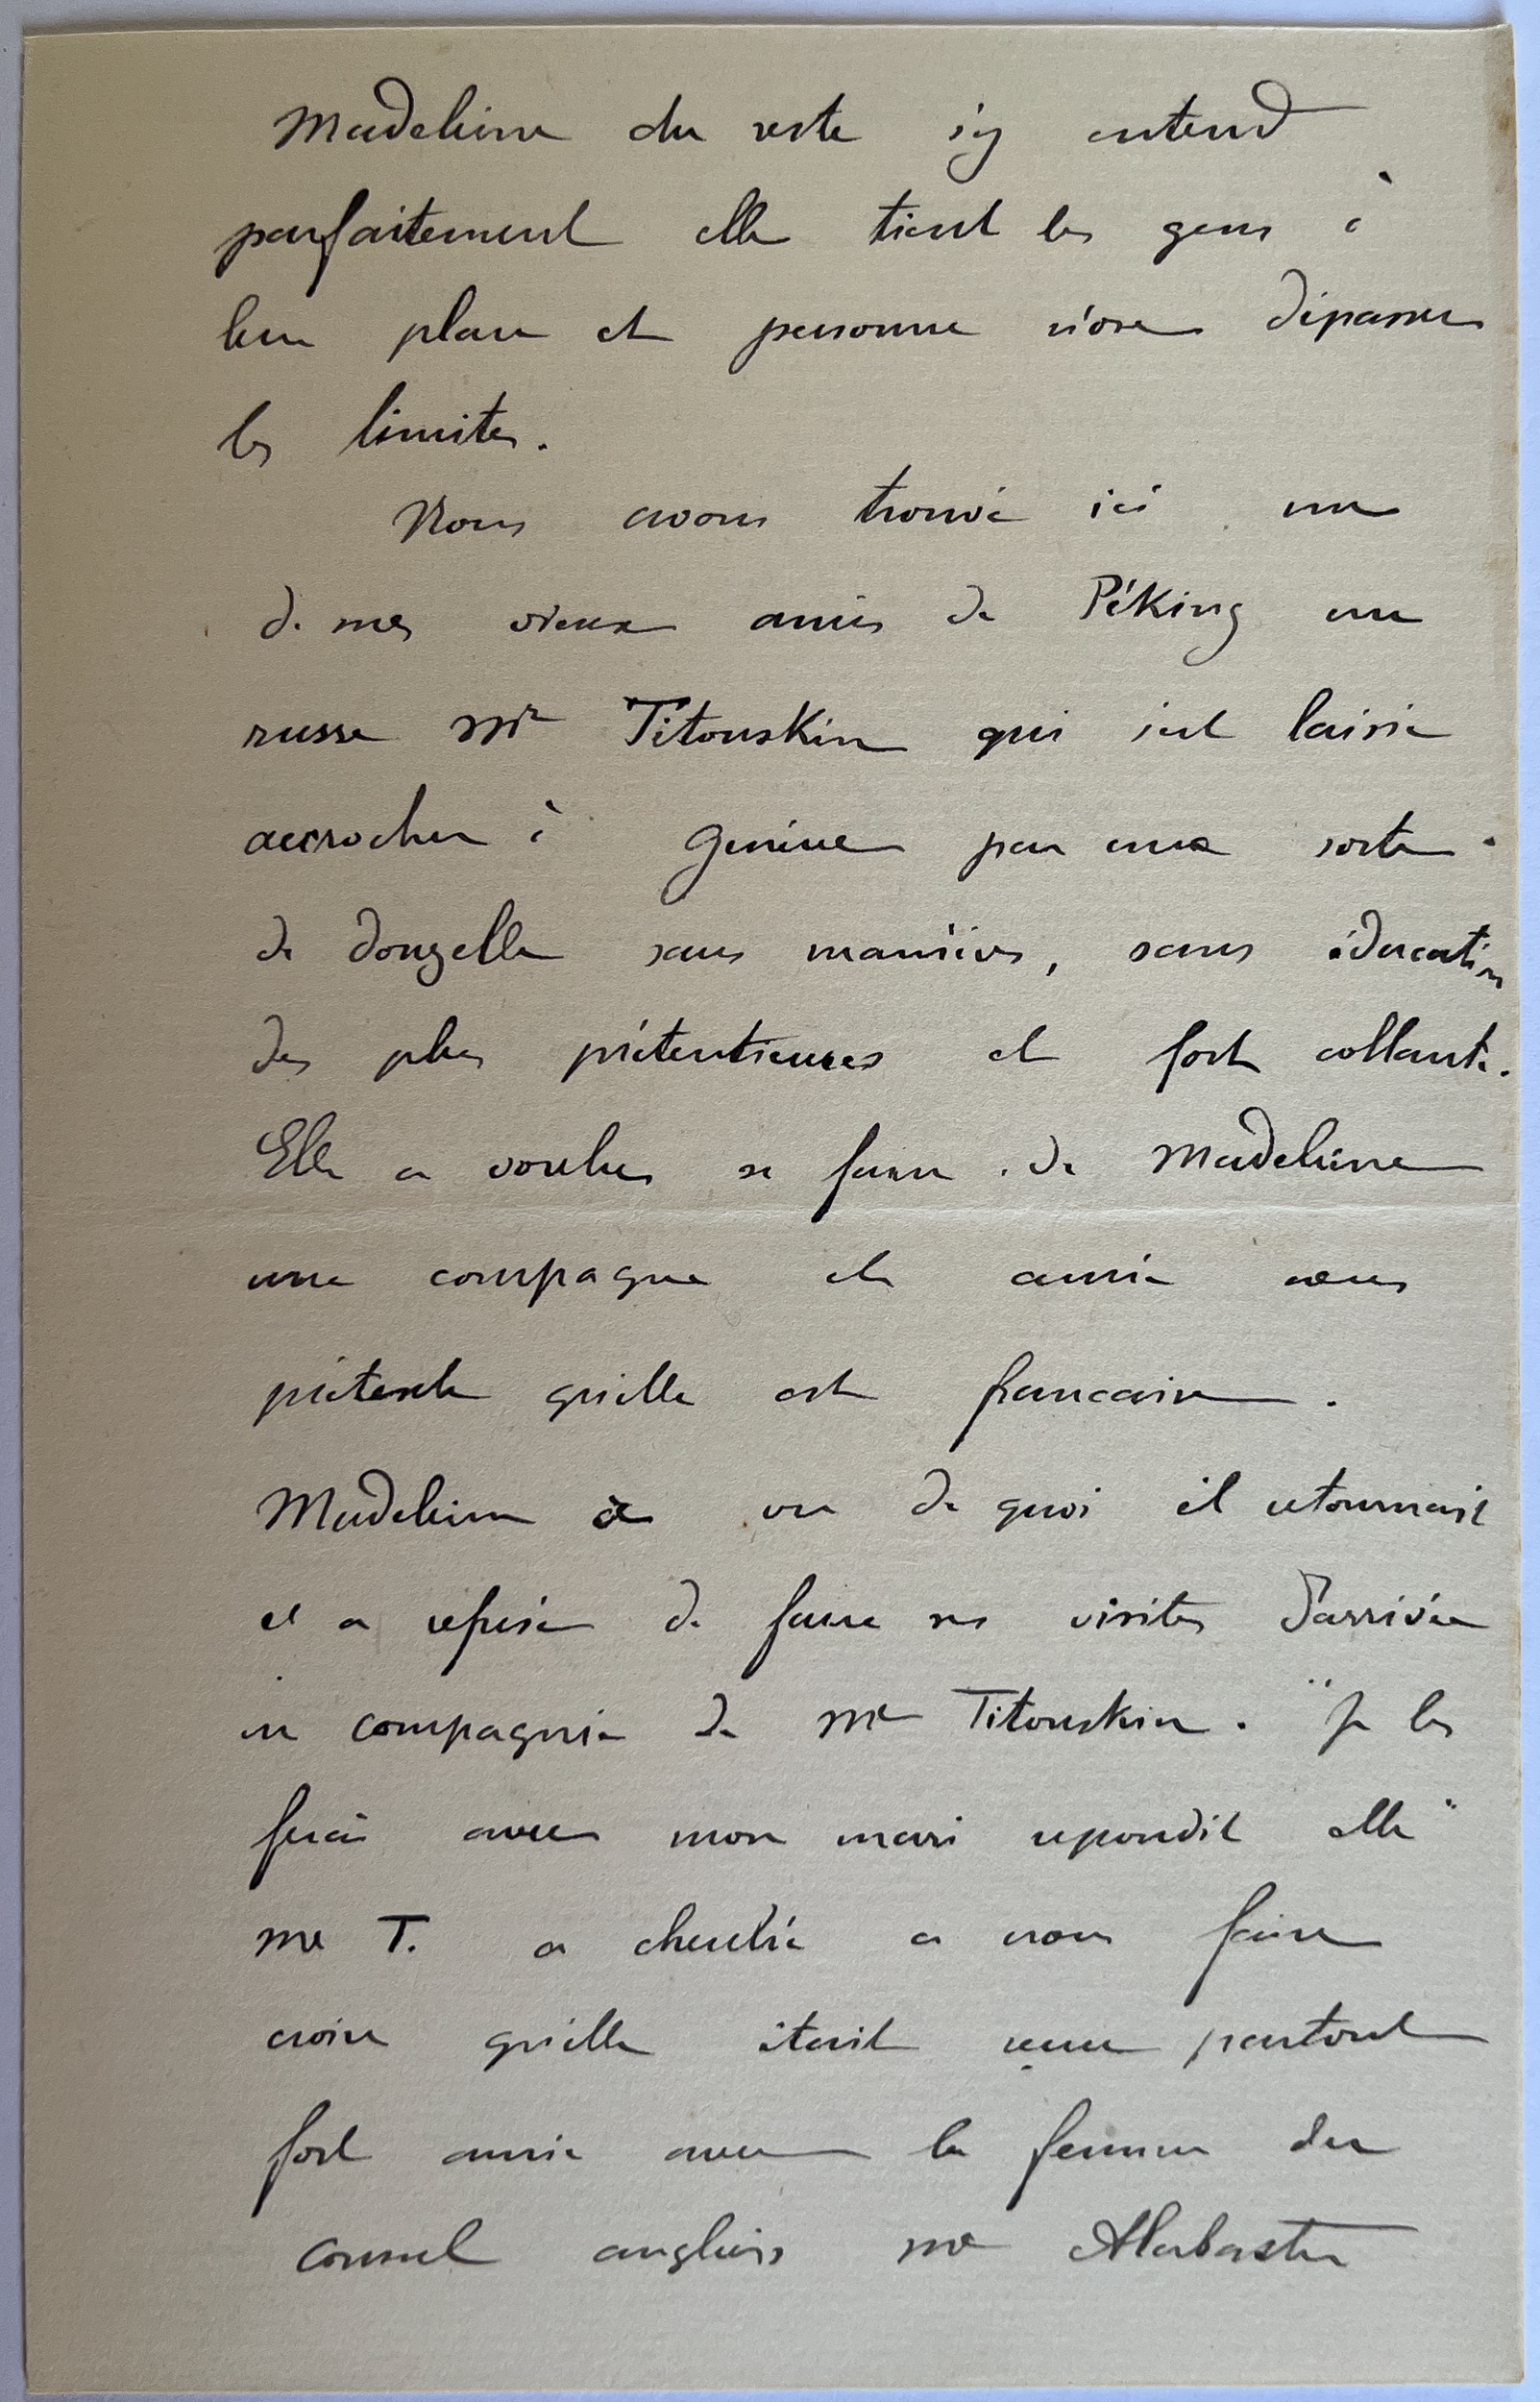 Madeleine du reste s'y entend
parfaitement elle tient les gens à
leur place et personne n'ose dépasser
les limites.
Nous avons trouvé ici un
de mes vieux amis de Péking un
russe Mr Titouskin qui s'est laissé
accrocher à Genève par une sorte
de donzelle sans manières, sans éducation
des plus prétentieuses et fort collante.
Elle a voulu se faire de Madeleine
une compagne et amie sous
prétexte qu'elle est francaise.
Madeleine a vu de quoi il retournait
et a refusé de faire ses visites d'arrivée
en compagnie de Me Titouskin. "Je les
ferai avec mon mari repondit elle"
Me T. a cherché a nous faire
croire qu'elle était reçue partout
fort amie avec la femme du
consul anglais Me Alabaster